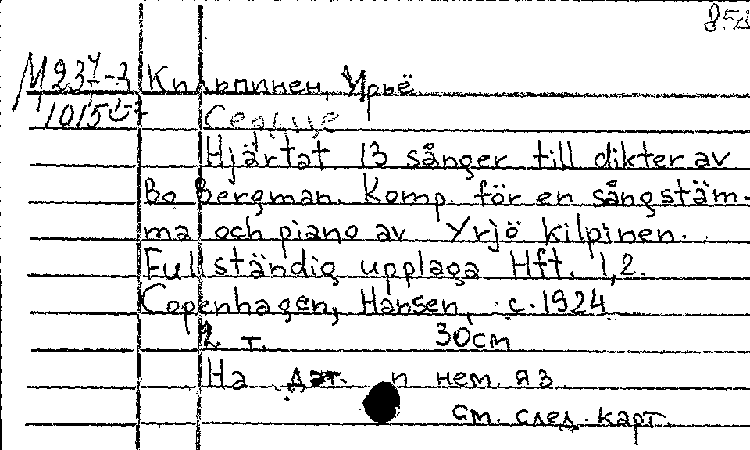 М 237-3 Кильпинен, Ирьё
Сердце
Hjärtat 13 sånger till dikter av
Bo Bergman. Komp. för en sångstäm-
ma och piano av Yrjö Kilpinen.
Fullständig upplaga Hft. 1,2.
Copenhagen, Hansen, c. 1924
2 т. 30cm
На дат. и нем. яз.
См. след. карт.